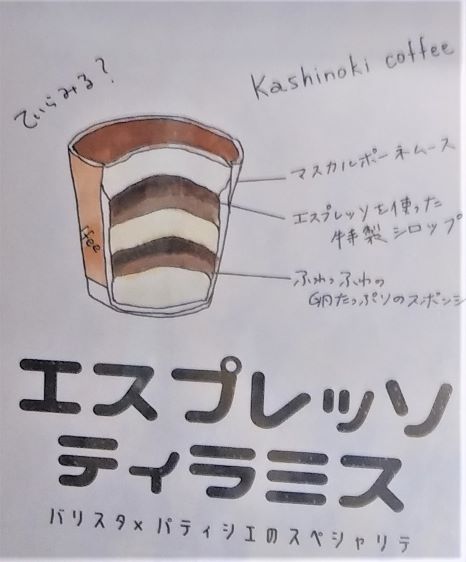 Kashinoki coffee
てぃらみる?
マスカルポーネムース
エスプレッソを使った
特製シロップ
ふわっふわの
卵たっぷりのスポンジ
ffee
エスプレッソ
ティラミス
バリスタ×パティシエのスペシャリテ